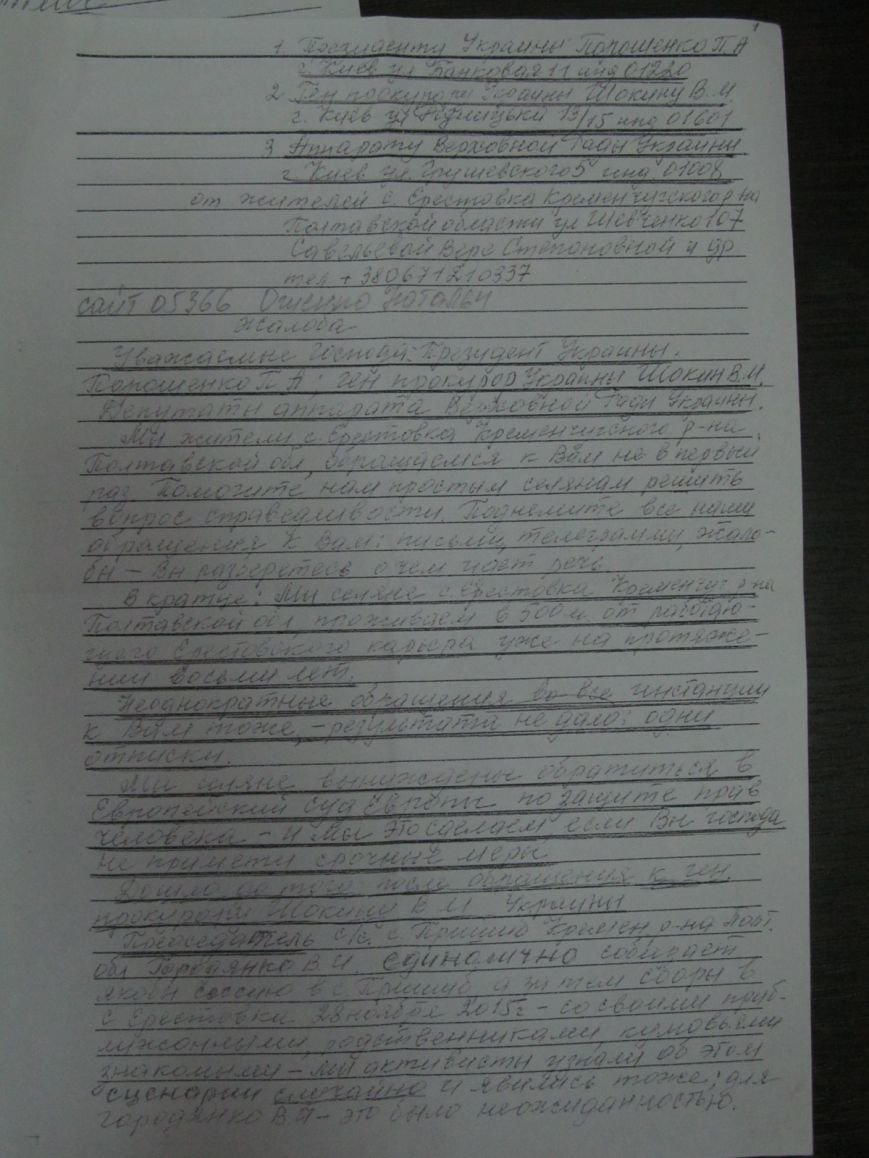 1. Президенту Украины Порошенко П.А
г. Киев ул Банковая 11 инд 01220
2. Ген прокурору Украины Шокину В.М.
г. Киев ул 13/15 инд 01601
3 Аппарату Верховной Рады Украины
г. Киев ул. Грушевского 5 инд 01008
от жителей с. Еристовка Кременчугского р-на
Полтавской области ул Шевченко 107
Савельевой Вере Степановной и др
тел +380671210337
сайт 05366 Наталья
Жалоба
Уважаемые Господа: Президент Украины.
Порошенко П А; ген прокурор Украины Шокин В.М.
Депутаты аппарата Верховной Рады Украины.
Мы жители с. Еристовка Кременчугского р-на
Полтавской обл, обращаемся к Вам не в первый
раз Помогите нам простым селянам решить
вопрос справедливости. Поднемите все наши
обращения к Вам: письма, телеграммы, жало-
бы – Вы разберетесь о чем идет речь.
В кратце: Мы селяне с. Еристовка Кременчуг р-на
Полтавской обл проживаем в 500 м от работаю-
щего Еристовского карьера уже на протяже-
нии восьми лет.
Неоднократные обращения во все инстанции
к Вам тоже, – результата не дало: одни
отписки.
Мы селяне вынуждены обратиться в
Европейский суд Европы по защите прав
человека – и мы это сделаем если Вы господа
не примети срочные меры
Дошло до того, после обращения к ген.
прокурору Шокину В М Украины
Председатель с/с. с Пришиб Кремен р-на Полт.
обл Городянко В.И. единолично собирает
якобы сессию в с Пришиб, а затем сборы в
с Еристовки 28 ноября 2015г – со своими приб-
лижонными, родственниками, кумовьями
знакомыми – мы активисты узнали об этом
сценарии случайно и явились тоже; для
Городянко В.И – это было неожиданностью.